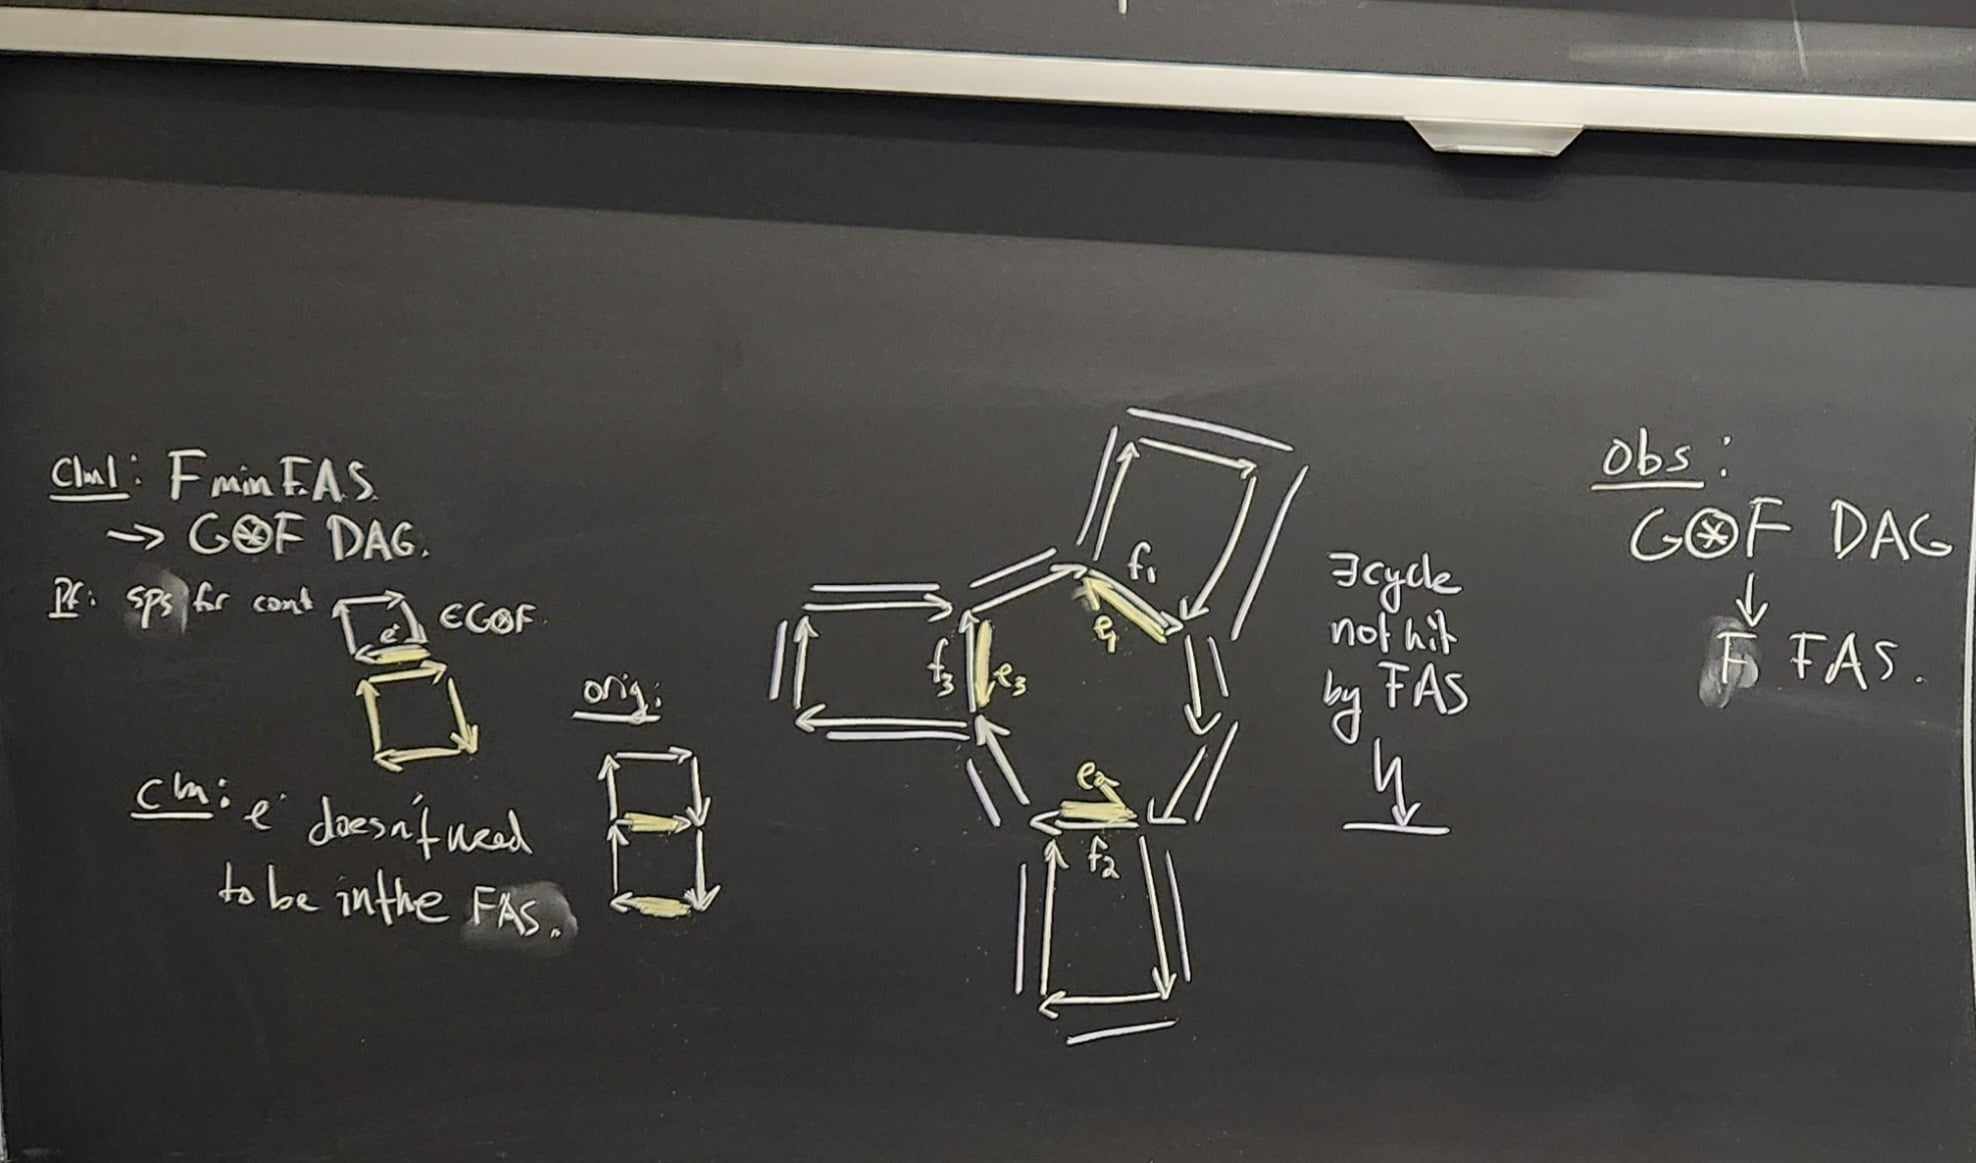 Clm1: F min FAS
→ G⊛F DAG.
Pf: sps for cont
e
∈G⊛F.
Clm: e doesn't need
to be in the FAS.
orig:
f₁
e₁
f₃
e₃
e₂
f₂
∃cycle
not hit
by FAS
obs:
G⊛F DAG
↓
F FAS.